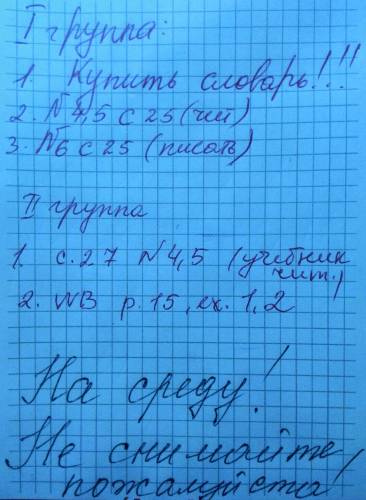 I группа:
1. Купить словарь!!!
2. №4,5 с 25 (чит)
3. №6 с 25 (писать)
II группа
1. с. 27 №4,5 (учебник
чит.)
2. WB p. 15, ex. 1,2
На среду!
Не снимайте,
пожалуйста!